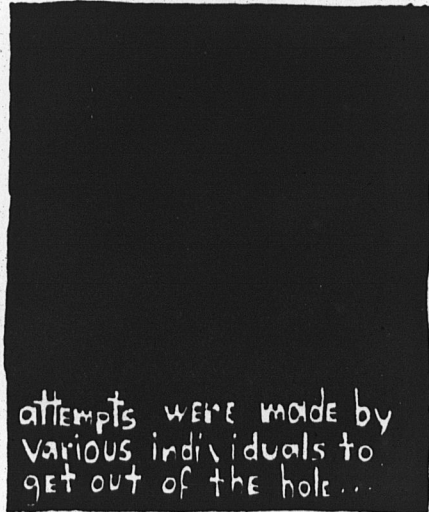 attempts were made by
various individuals to
get out of the hole...